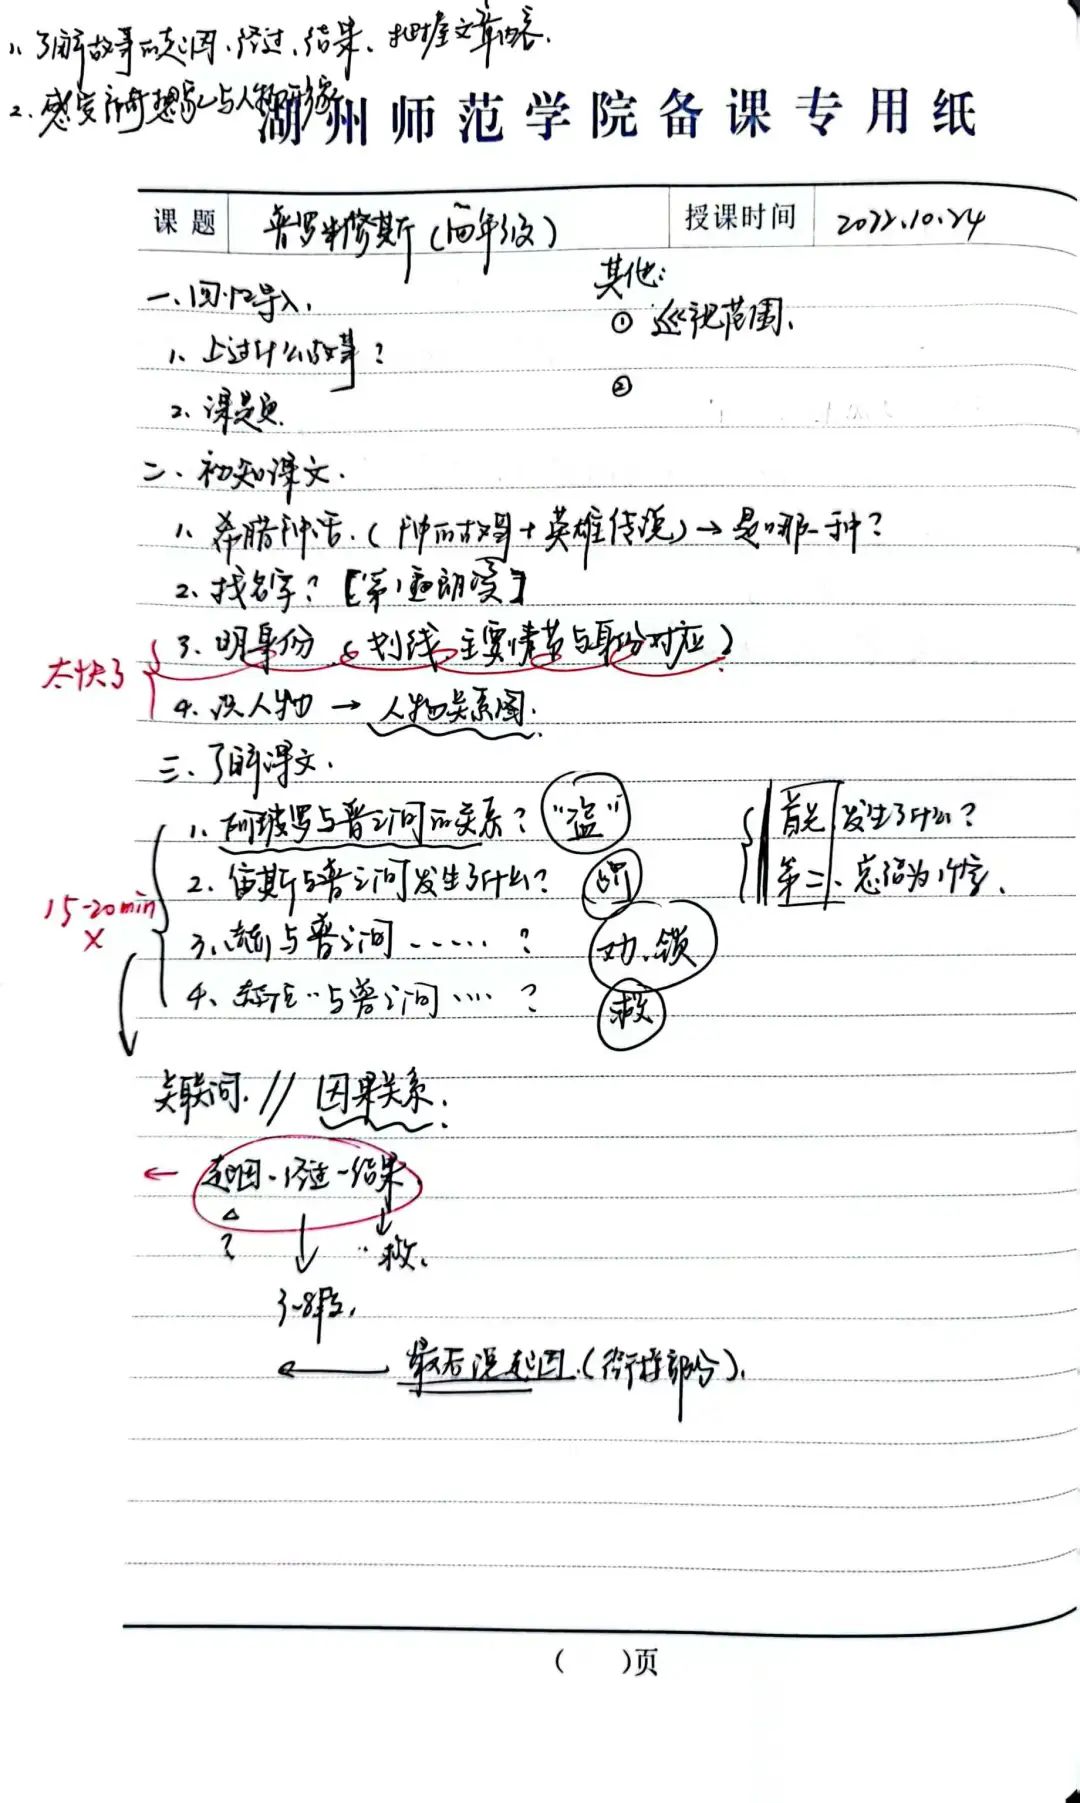 1、了解故事的起因、经过、结果、把握文章内容.
2、感受神奇想象与人物形象
湖州师范学院备课专用纸
课题 普罗米修斯(四年级) 授课时间 2022.10.24
一、回忆导入. 其他:
① 巡视范围、
1、上过什么故事?
②
2、课题页.
二、初知课文.
1、希腊神话.(神的故事+英雄传说)→是哪一种?
2、找名字?【第1遍朗读】
3、明身份(划线,主要情节与身份对应)
太快了
4、说人物→人物关系图.
三、了解课文.
1、阿波罗与普之间的关系? “盗” 首先 发生了什么?
2、宙斯与普之间发生了什么? 罚 第二、总结为1个字、
15-20min
×
3、与普之间……? 劝、锁
4、与普之间….? 救
关联词.// 因果关系.
← 起因-经过-结果
? 救.
3-8段.
← 最后说起因.(衔接部分).
( )页